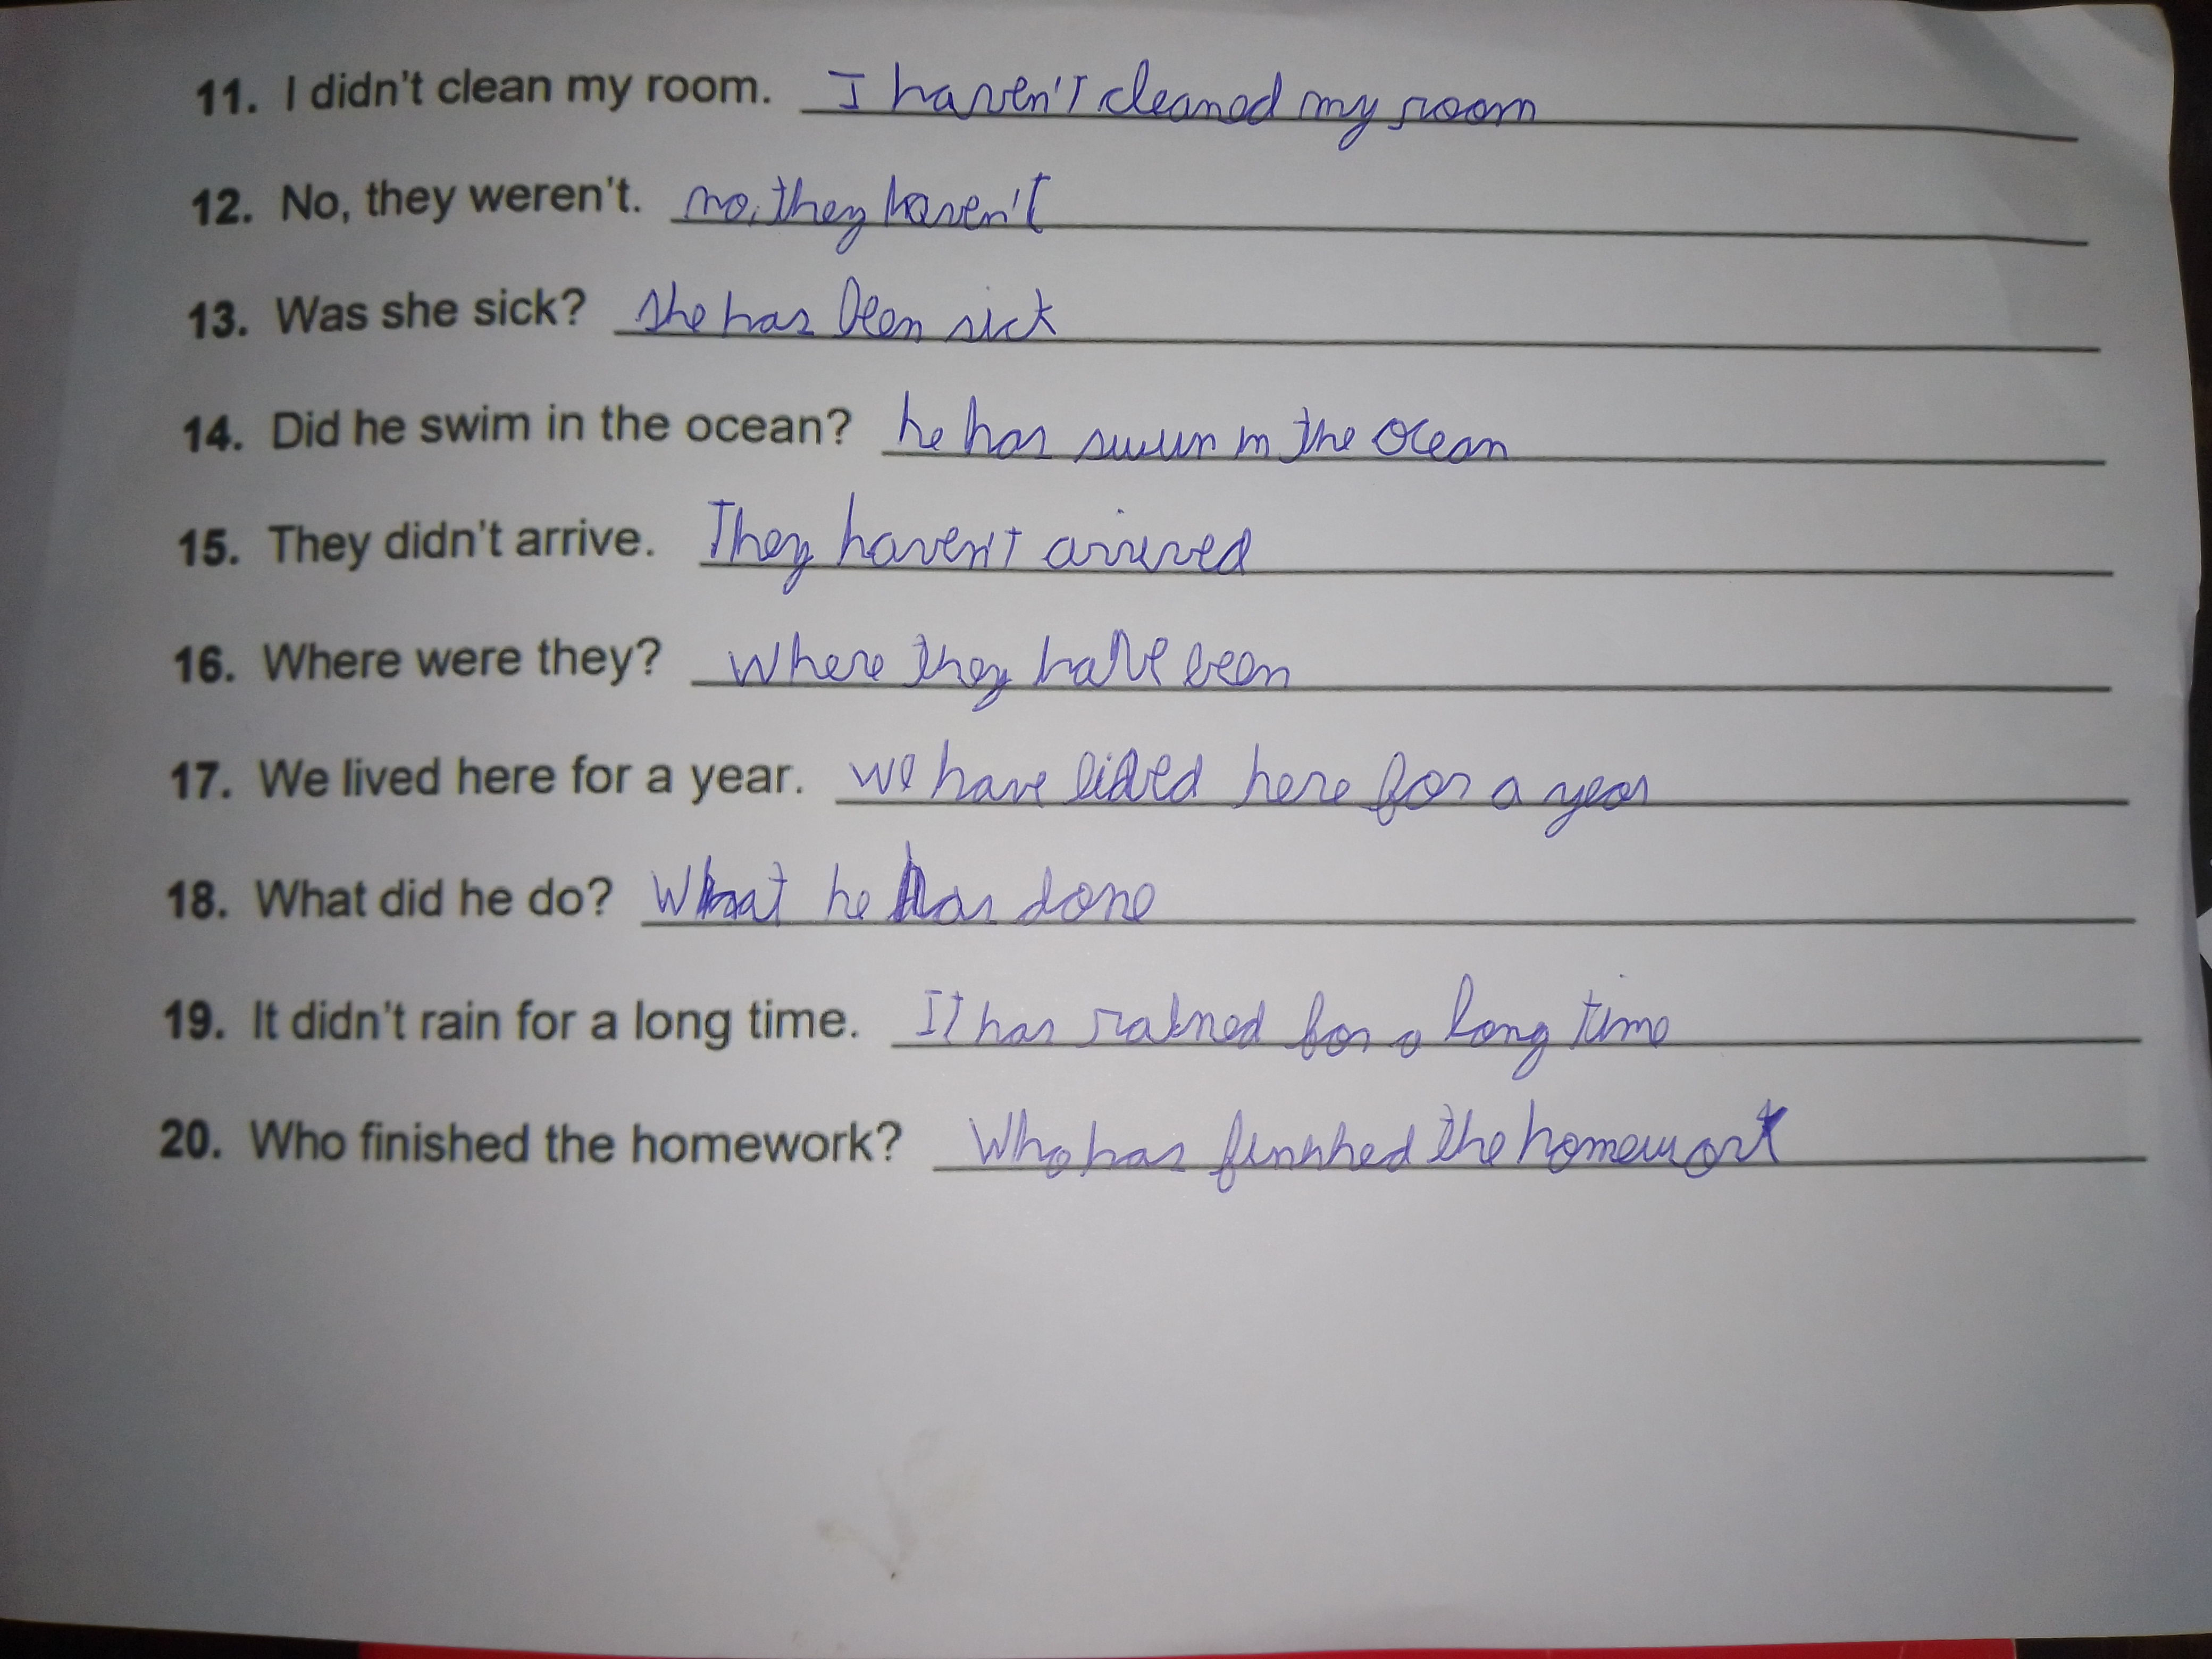 11. I didn't clean my room. I haven't cleaned my room
12. No, they weren't. no, they haven't
13. Was she sick? she has been sick
14. Did he swim in the ocean? he has swum in the ocean
15. They didn't arrive. They haven't arrived
16. Where were they? Where they have been
17. We lived here for a year. we have lived here for a year
18. What did he do? What he has done
19. It didn't rain for a long time. It has rained for a long time
20. Who finished the homework? Who has finished the homework